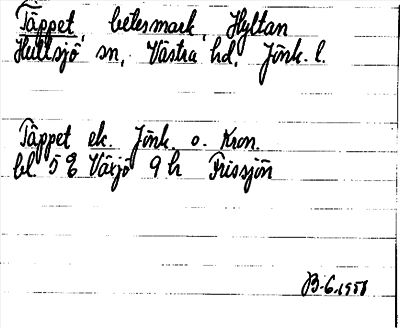 Täppet, betesmark, Hyltan
Hultsjö sn, Västra hd, Jönk. l.
Täppet ek. Jönk. o. Kron.
bl. 5 E Växjö 9 h Frissjön
B. G. 1958